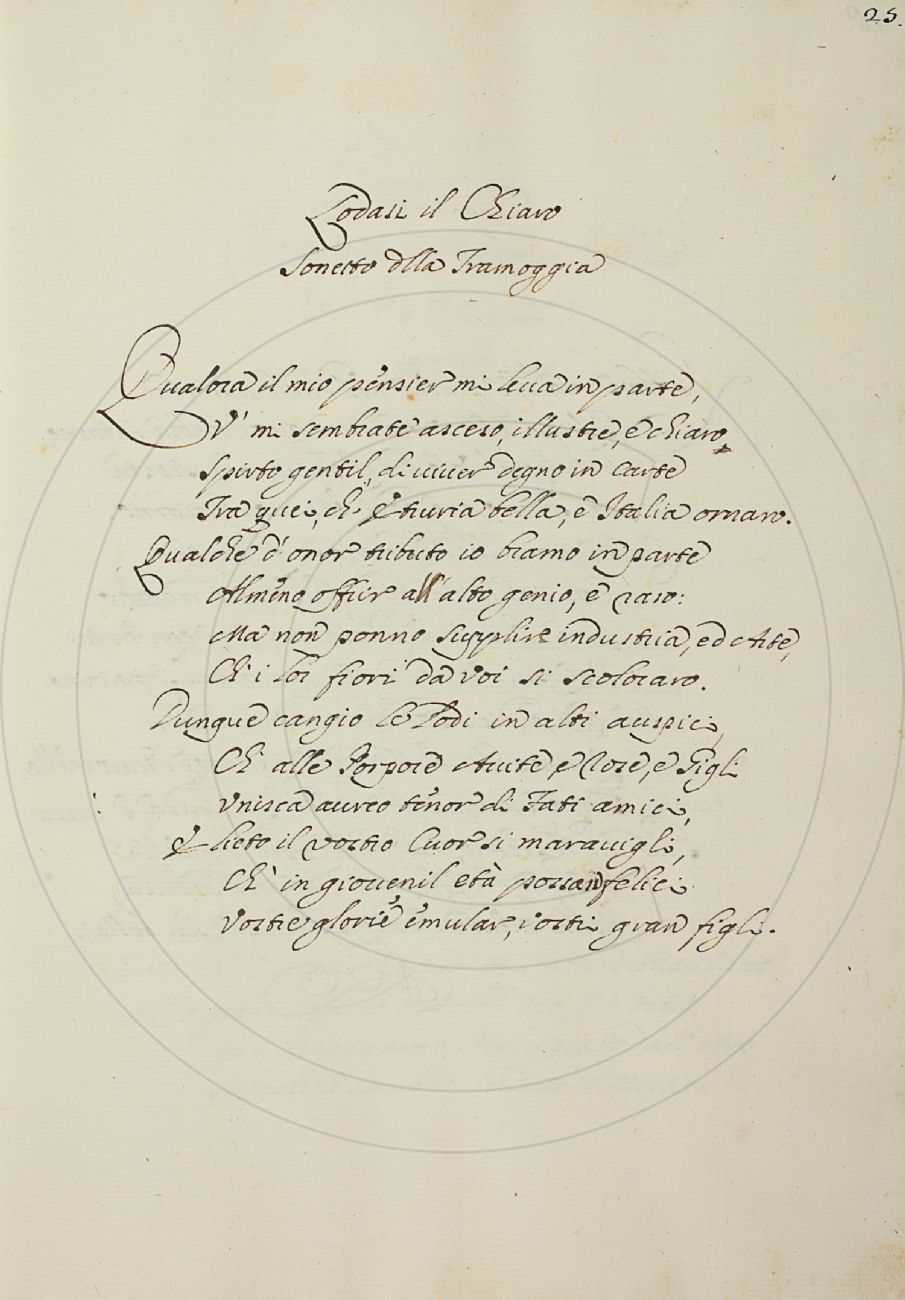 25.
Lodasi il Chiaro
Sonetto dlla Tramoggia
Qualora il mio pensier mi leva in parte,
V' mi sembrate asceso, illustre, e chiaro,
Spirto gentil, di viver degno in Carte
Tra quei, ch' Etruria bella, e Italia ornaro.
Qualche d'onor tributo io bramo in parte
Almeno offrir all'alto genio, e raro:
Ma non ponno supplire industria, ed Arte,
Ch' i lor fiori da voi si scoloraro.
Dunque cangio le Lodi in altri auspici,
Ch' alle Porpore Avite, e Rose, e Gigli
Vnisca aureo tenor di Fati amici,
E lieto il vostro Cuor si maravigli,
Ch' in giovenil età possan felici
Vostre glorie emular, i vostri gran figli.